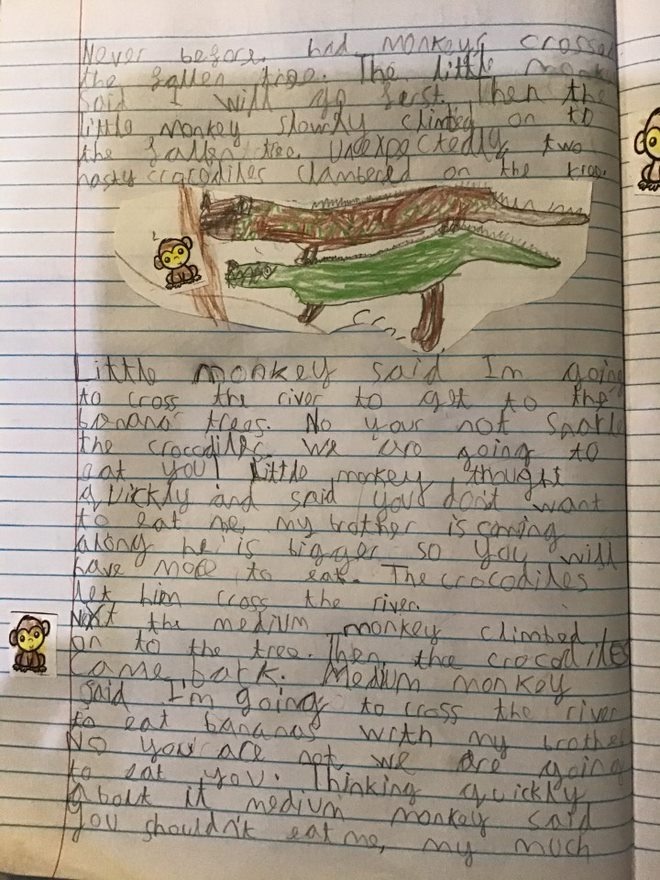 Never before had monkeys crossed
the fallen tree. The little monkey
said I will go ferst. Then the
little monkey slowly climbed on to
the fallen tree. Unexpectedly, two
nasty crocodiles clambered on the tree.
Little monkey said I'm going
to cross the river to get to the
banana treas. No your not Snarled
the crocodiles. We are going to
eat you! Little monkey thought
quickly and said you don't want
to eat me, my brother is coming
along he is bigger so you will
have more to eat. The crocodiles
let him cross the river.
Next the medium monkey climbed
on to the tree. Then the crocodiles
came back. Medium monkey
said I'm going to cross the river
to eat bananas with my brother
No you are not we are going
to eat you. Thinking quickly
about it medium monkey said
you shouldn't eat me, my much